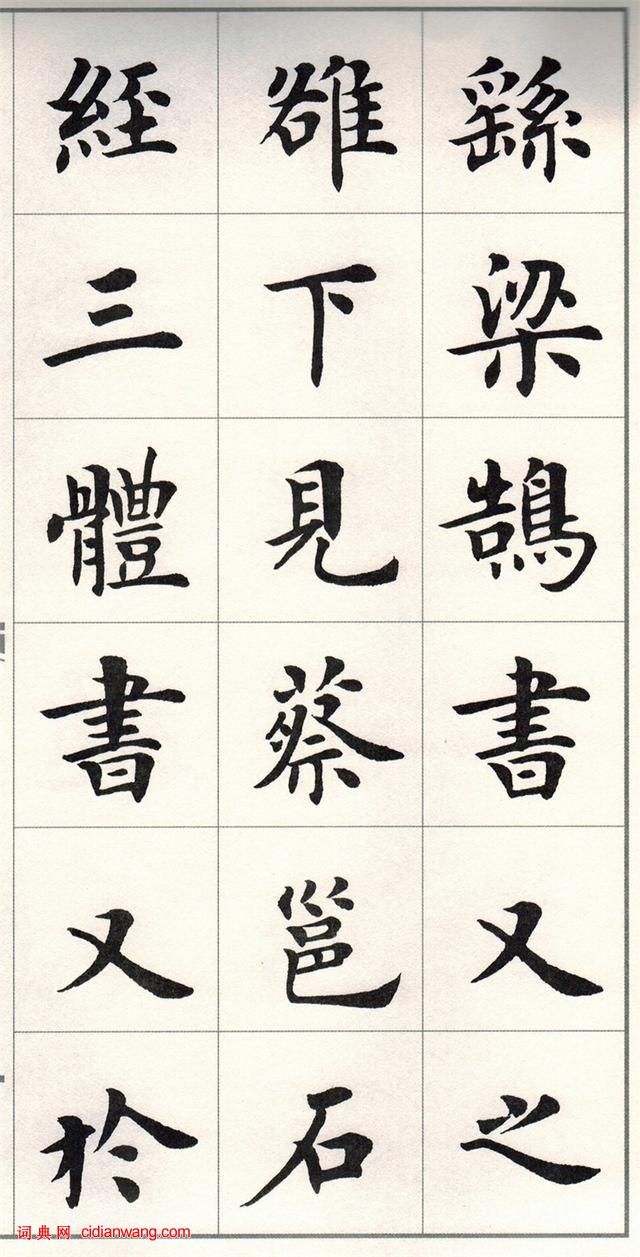 繇梁鵠書又之
雒下見蔡邕石
經三體書又於
词典网 cidianwang.com